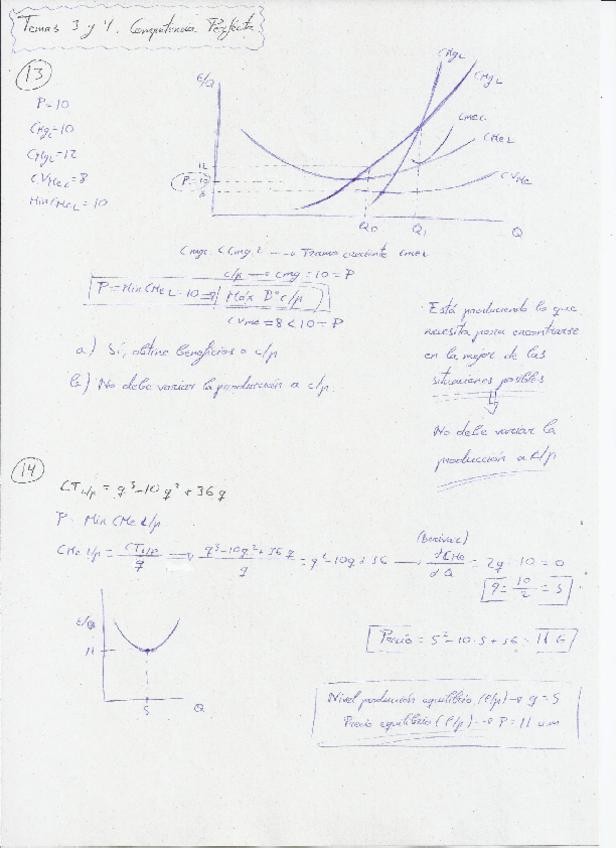 Temas 3 y 4. Competencia Perfecta
13
P=10
CMgc=10
CMgL=12
CVMec=8
MinCMeL=10
€/Q
CMgc
CMgL
CMec
CMeL
CVMe
12
P=10
8
Q0
Q1
Q
Tramo creciente CMeL
c/p → Cmg=10=P
P=MinCMeL=10 Máx Bº c/p
CVMe=8<10=P
a) Sí, obtiene beneficios a c/p
b) No debe variar la producción a c/p.
Está produciendo lo que
necesita para encontrarse
en la mejor de las
situaciones posibles
No debe variar la
producción a c/p
14
CTl/p = q³-10q²+36q
P= Min CMe l/p
CMe l/p = CTl/p / q → q³-10q²+36q / q = q²-10q+36 → (Derivar) dCMe / dQ = 2q-10=0
q = 10/2 = 5
€/Q
11
5
Q
Precio = 5²-10·5+36 = 11 €
Nivel producción equilibrio (l/p) → q=5
Precio equilibrio (l/p) → P=11 u.m